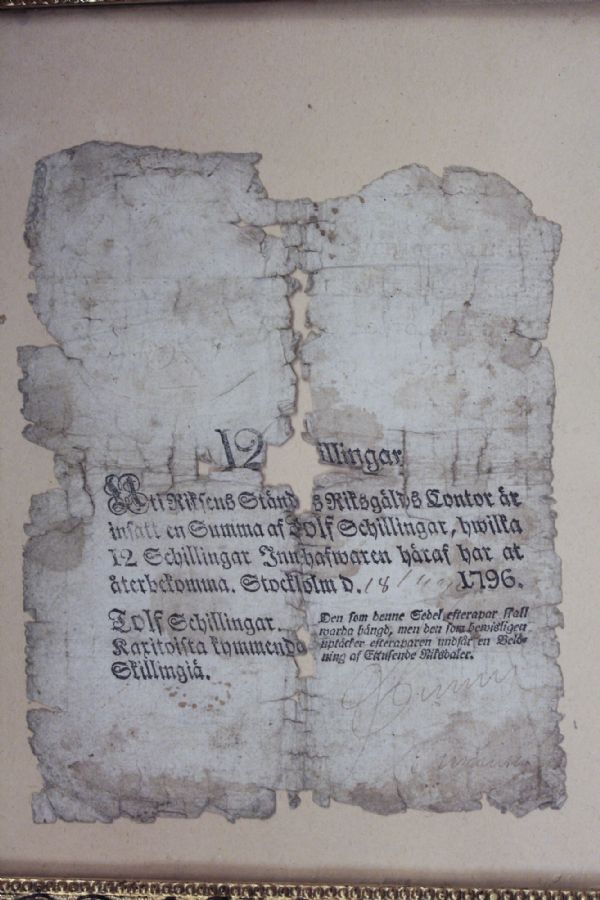 12 illingar
Uti Riksens Ständ s Riksgälds Contor är
insatt en Summa af Tolf Schillingar, hwilka
12 Schillingar Innhafwaren häraf har at
återbekomma. Stockholm d. 18 1796.
Tolf Schillingar.
Kaxitoista kymmendä
Skillingiä.
Den som denne Sedel efterapar skall
warda hängd, men den som bewisligen
uptäcker efteraparen undfår en Belö-
ning af Ettusende Riksdaler.